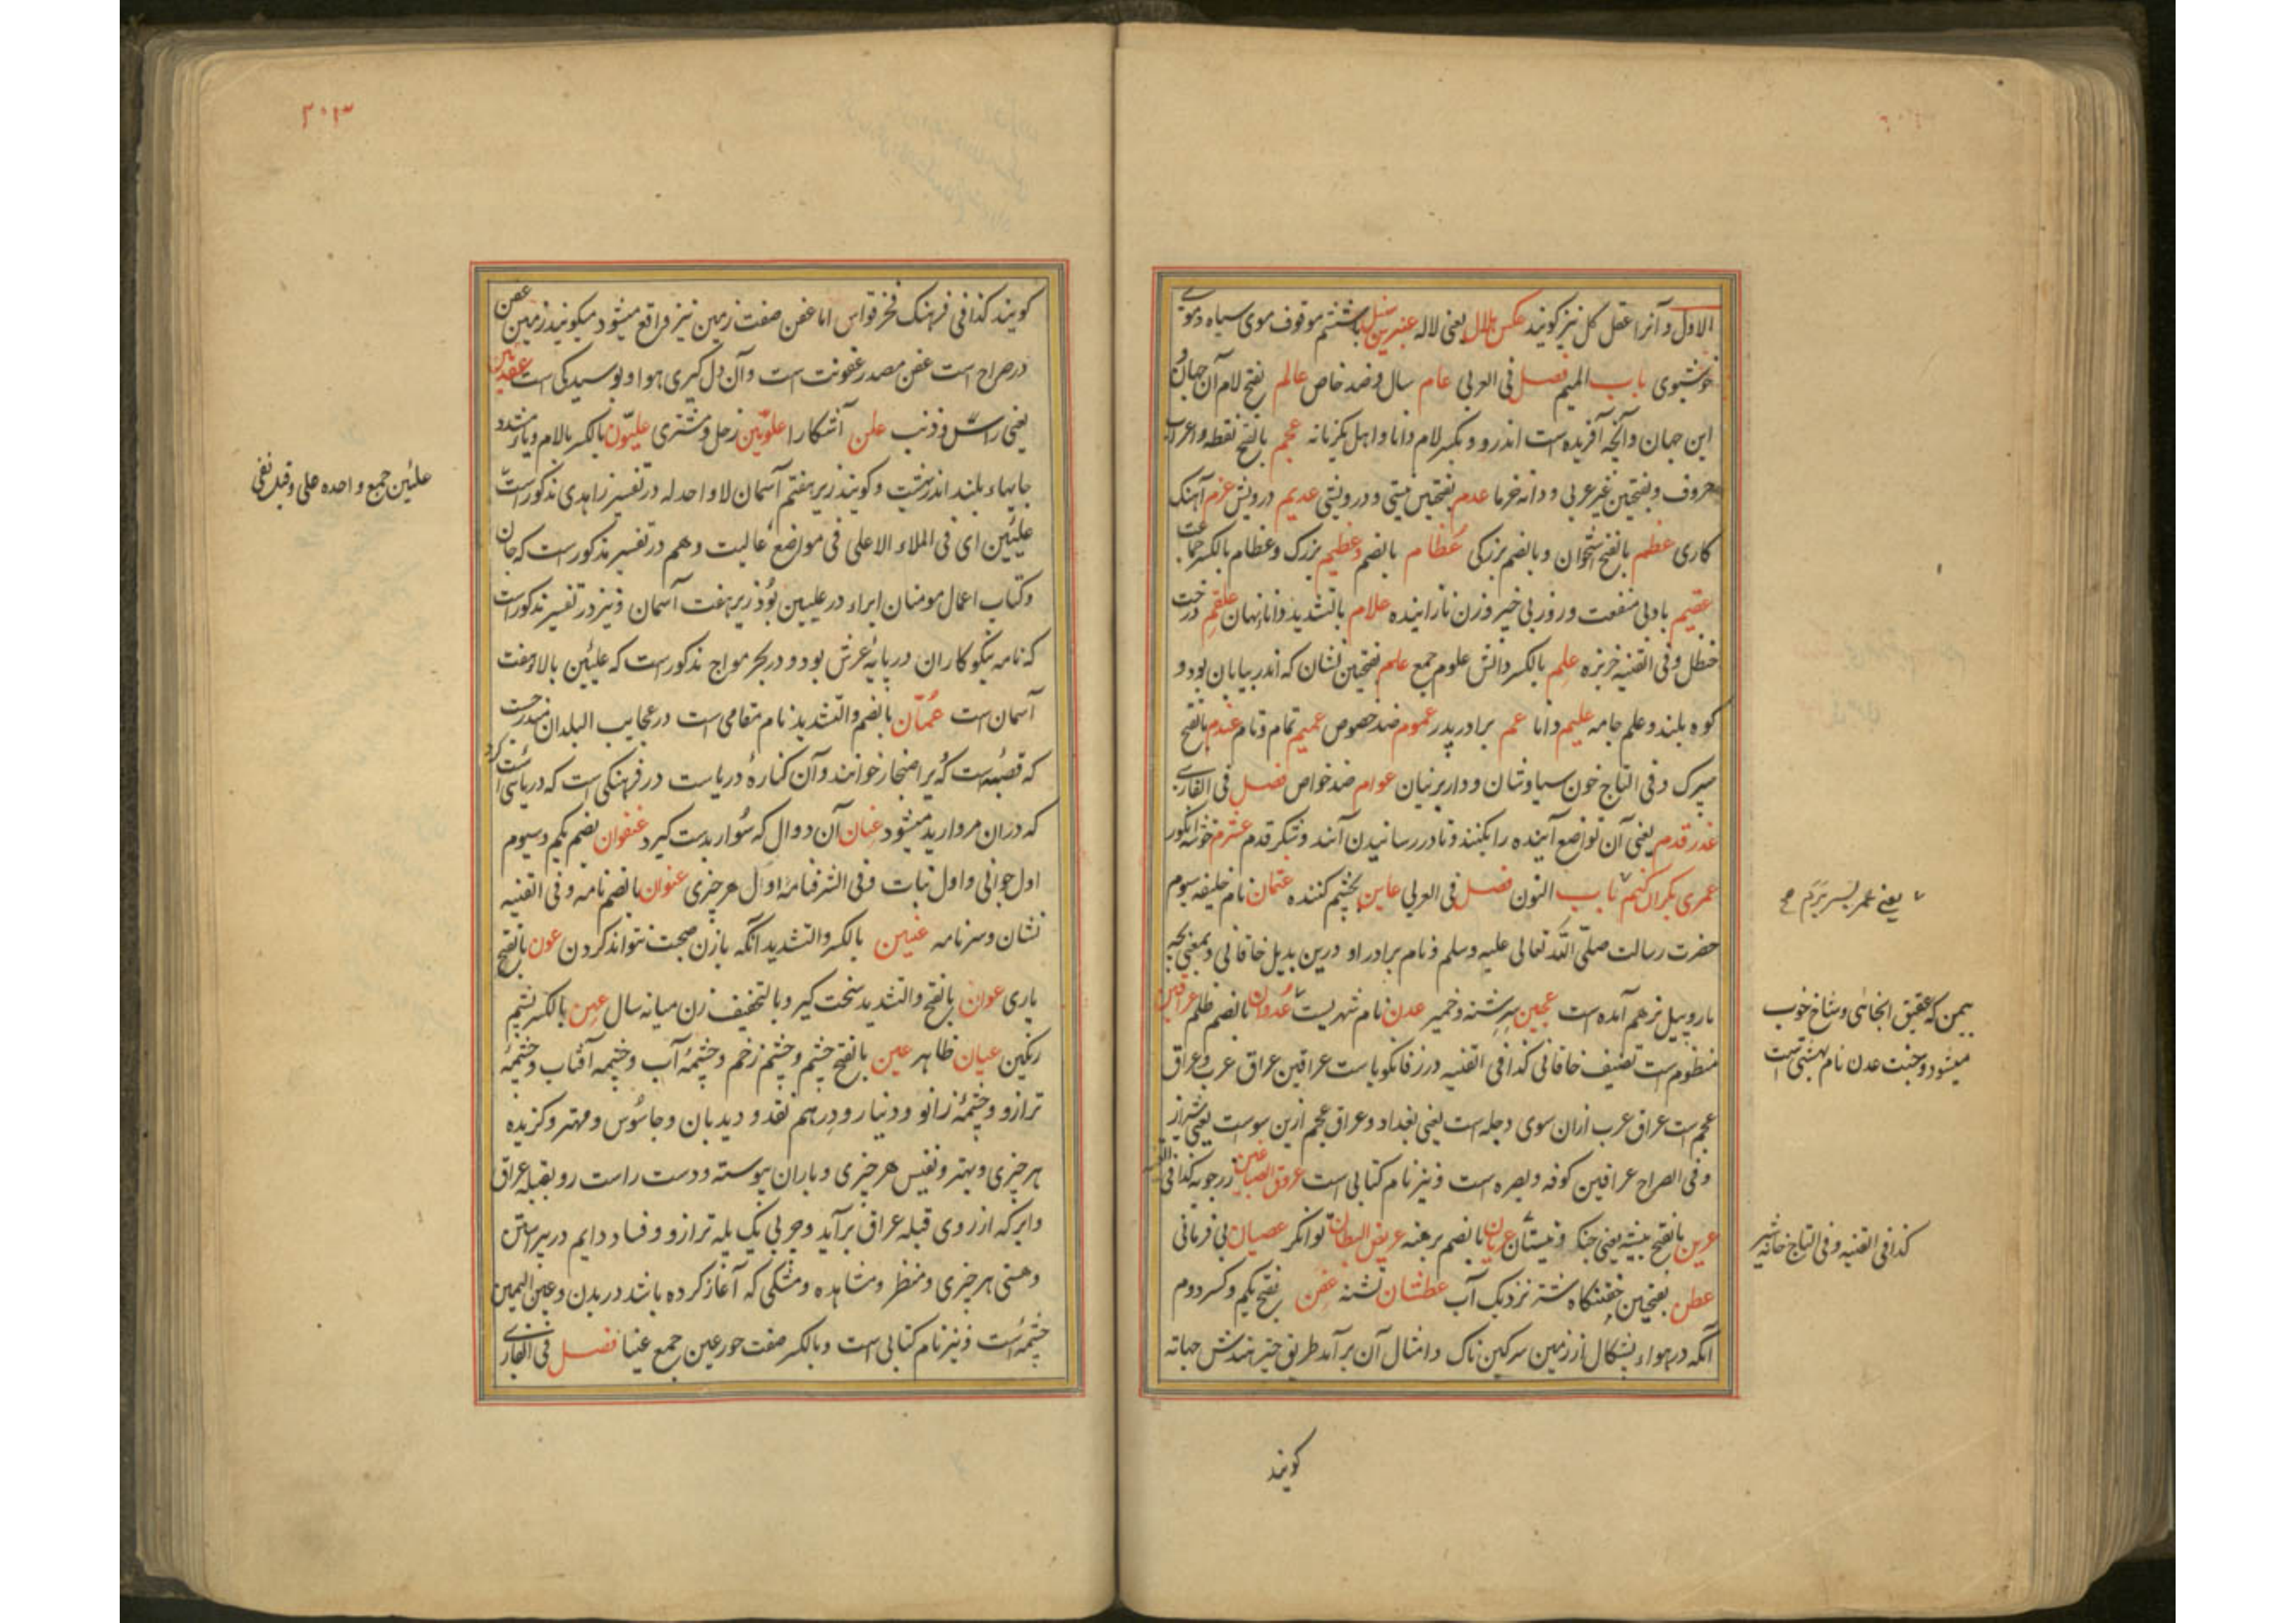 الاول و آنرا عقل کل نیز کویند عکس هلال یعنی لاله عنبرین سنبل با ششم موقوف موی سیاه و موی
خوشبوی باب المیم فصل فی العربی عام سال و ضد خاص عالم بفتح لام آن جهان و
این جهان و آنچه آفریده است اندرو و بکسر لام دانا و اهل یکزبانه عجم بالفتح نقطه و اعراب
حروف و بفتحین غیر عربی و دانه خرما عدم بفتحین نیستی و درویشی عدیم درویش عزم آهنک
کاری عظم بالفتح استخوان و بالضم بزرکی عظام بالضم و عظیم بزرک و عظام بالکسر جماعت
عقیم باد بی منفعت و روز بی خیر و زن نازاینده علام بالتشدید دانا نهان علقم درخت
حنظل و فی القنیه خربزه علم بالکسر دانش علوم جمع علم بفتحین نشان که اندر بیابان بود و
کوه بلند و علم جامه علیم دانا عم برادر پدر عموم ضد خصوص عمیم تمام و تام عندم بالفتح
سپرک و فی التاج خون سیاوشان و دار پرنیان عوام ضد خواص فصل فی الفارسی
عذر قدم یعنی آن تواضع آینده را بکنند و تا در رسانیدن آیند و شکر قدم عشرم خوشه انکور
عمری بکران کنم باب النون فصل فی العربی عاین بچشم کننده عثمان نام خلیفه سیوم
حضرت رسالت صلی الله تعالی علیه وسلم و نام برادر او درین بدیل خاقانی و بمعنی بچه
مار و پیل نر هم آمده است عجین سرشته و خمیر عدن نام شهریست عدوان بالضم ظلم عراقین
منظوم است تصنیف خاقانی کذا فی القنیه در زفانکویا ست عراقین عراق عرب و عراق
عجم است عراق عرب ازان سوی دجله است یعنی بغداد و عراق عجم ازین سوست یعنی شیراز
و فی الصراح عراقین کوفه و بصره است و نیز نام کتابی است عروق الصباغین زرچوبه کذا فی القنیه
عرین بالفتح بیشه یعنی جنک و نیستان عریان بالضم برهنه عریض البطان توانکر عصیان بی فرمانی
عطن بفتحین خفتنکاه شتر نزدیک آب عطشان تشنه عفن بفتح یکم و کسر دوم
آنکه در هواء بشکال از زمین سرکین ناک و امثال آن برآید طریق چتر هندش جهاته
کویند
یعنی عمر بسر برم
یمن که عقیق انجاشی و شاخ خوب
میشود و جنت عدن نام بهشتی است
کذا فی القنیه و فی التاج خانه شیر
۳۰۳
کویند کذا فی فرهنک فخر قواس اما عفن صفت زمین نیز واقع میشود میکویند زمین عفن
در صراح است عفن مصدر عفونت است و آن دل کیری هوا و بوسیدکی است عقدین
یعنی راس و ذنب علن آشکارا علویین زحل و مشتری علیون بالکسر بالام و یاء مشدد
جایهاء بلند اندر بهشت و کویند زیر هفتم آسمان لا واحد له در تفسیر زاهدی مذکور است
علیین ای فی الملاء الاعلی فی مواضع عالیت و هم در تفسیر مذکور است که جان
و کتاب اعمال مومنان ابراء در علیین بود زیر هفت آسمان و نیز در تفسیر مذکور است
که نامه نیکوکاران در پایه عرش بود و در بحر مواج مذکور است که علیین بالاء هفت
آسمان است عمان بالضم و التشدید نام مقامی است در عجایب البلدان
که قصبه است که برا صنجار خوانند و آن کناره دریاست در فرهنکی است که دریائی است
که دران مروارید میشود عنان آن دوال که سوار بدست کیرد عنفوان بضم یکم و سیوم
اول جوانی و اول نبات و فی الشرفنامه اول هر چیزی عنوان بالضم نامه و فی القنیه
نشان و سر نامه عنین بالکسر و التشدید آنکه با زن صحبت نتواند کردن عون بالفتح
یاری عوان بالفتح و التشدید سخت کیر و بالتخفیف زن میانه سال عین بالکسر پشم
رنکین عیان ظاهر عین بالفتح چشم و چشم زخم و چشمه آب و چشمه آفتاب و چشمه
ترازو و چشمه زانو و دینار و درهم نقد و دیدبان و جاسوس و مهتر و کزیده
هر چیزی و بهتر و نفیس هر چیزی و باران پیوسته و دست راست رو بقبله عراق
و ابر که از روی قبله عراق برآید و چربی یک پله ترازو و فساد دایم در پیراستن
و هستی هر چیزی و منظر و مشاهده و مشکی که آغاز کرده باشد دریدن و عین الیمین
چشمه است و نیز نام کتابی است و بالکسر صفت حور عین جمع عینا فصل فی الفارسی
علیین جمع واحده علی و قیل نفی